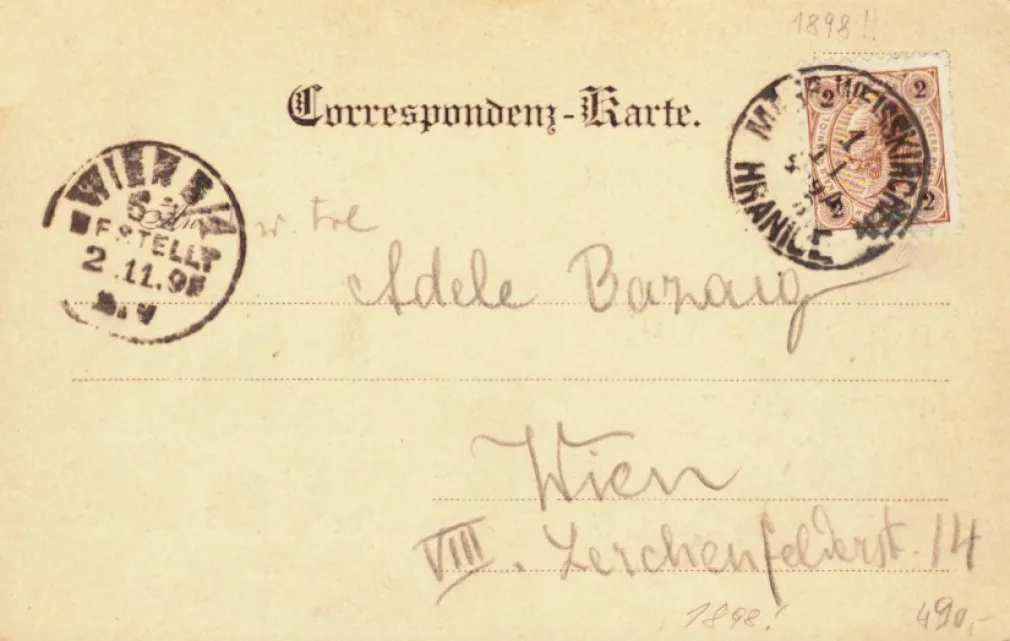 1898!!
Correspondenz-Karte.
2 2
2 2
MÄHR. WEISSKIRCHEN
HRANICE
WIEN
BESTELLT
2.11.98
Adele Bazaig
Wien
VIII. Lerchenfelderst. 14
1898!
490,-